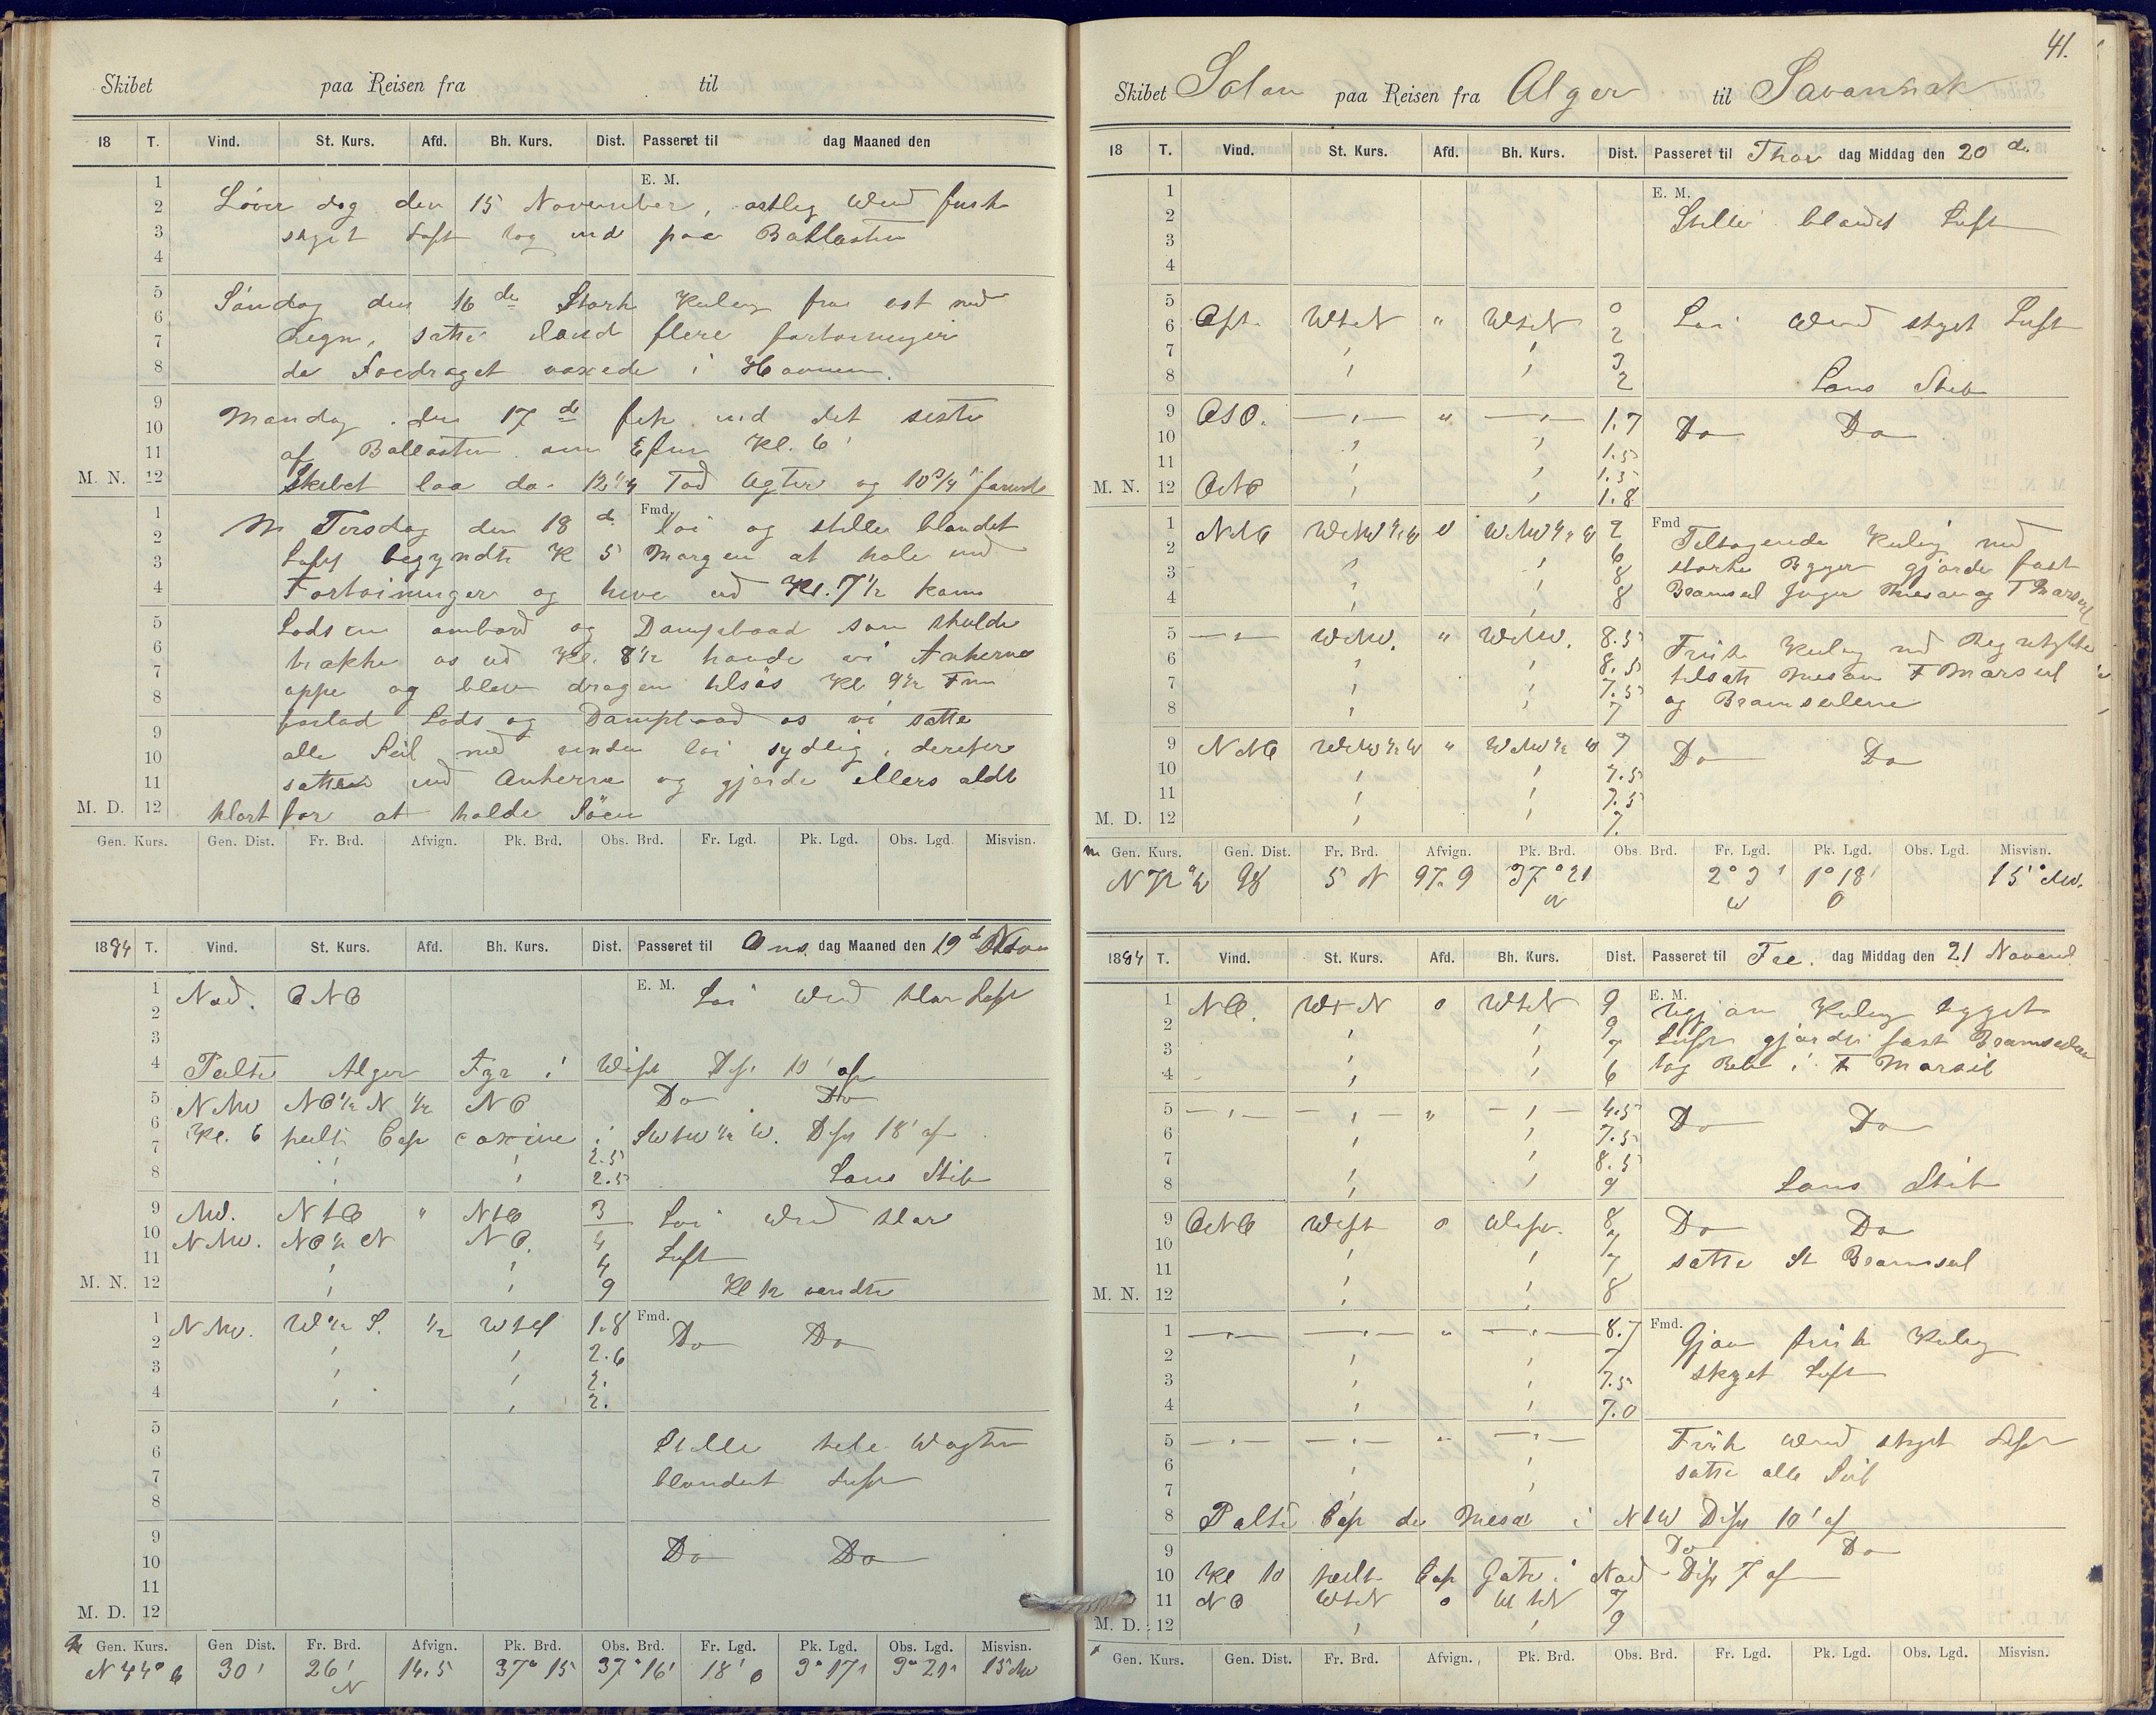 Skibet paa Reisen fra til
18 T. Vind. St. Kurs. Afd. Bh. Kurs. Dist. Passeret til dag Maaned den
E. M.
Löverdag den 15 November, ostlig Wind frisk
skyet Luft tog ind paa Ballasten
Söndag den 16 de Stærk Kuling fra ost med
Regn, satte iland flere fortoininger
da Soedraget voxede i Havnen.
Mandag den 17 de fik ind det siste
af Ballasten om Efm Kl. 6
M. N. 12 Skibet laa da 12 1/4 Fod Agter og 10 3/4 " forud
Fmd.
Tirsdag den 18 d. loi og stille blandet
Luft begyndte Kl 5 Morgen at hale ind
Fortoininger og hive ud Kl. 7 1/2 kom
Lodsen ombord og Dampbaad som skulde
trække os ud Kl. 8 1/2 havde vi Ankerne
oppe og blev dragen tilsös Kl 9 1/2 Fm
forlod Lods og Dampbaad os vi satte
alle Seil med vinden loi sydlig, derefter
satte ind Ankerne og gjorde ellers aldt
M. D. 12 klart for at holde Söen
Gen. Kurs. Gen. Dist. Fr. Brd. Afvign. Pk. Brd. Obs. Brd. Fr. Lgd. Pk. Lgd. Obs. Lgd. Misvisn.
1884 T. Vind. St. Kurs. Afd. Bh. Kurs. Dist. Passeret til Ons dag Maaned den 19 d Nov
E. M.
1 Nord. ONO Loi Wind klar Luft
2
3
4 Peilte Alger Fyr i West Dist 10' af
5 NNW NO 1/2 N 1/2 NO Do Do
6 Kl. 6 peilte Cap Caxine i SWtW 1/2 W. Dist 18' af
7 2.5
8 2.5 Lans Skib
9 NW. NtO " NtO 3 Loi Wind klar
10 NNW. NO 1/2 N NO. 4
11 4 Luft
M. N. 12 9 Kl 12 vendte
Fmd.
1 NNW. W 1/2 S. 1/2 WtS 1.8 Do Do
2 2.6
3 2.
4 2.
5
6 Stille hele Wagten
7 blandet Luft
8
9
10 Do Do
11
M. D. 12
Gen. Kurs. Gen Dist. Fr. Brd. Afvign. Pk. Brd. Obs. Brd. Fr. Lgd. Pk. Lgd. Obs. Lgd. Misvisn.
N 44° O 30' 26' N 14.5 37° 15 37° 16' 18' O 3° 17' 3° 21' 15 NW
41.
Skibet Solon paa Reisen fra Alger til Savannah
18 T. Vind. St. Kurs. Afd. Bh. Kurs. Dist. Passeret til Thors dag Middag den 20 de
E. M.
1
2 Stille blandet Luft
3
4
5 0
6 Ost. WtN " WtN 2 Loi Wind skyet Luft
7 3
8 2 Lans Skib
9 OSO. " 1.7 Do Do
10 1.5
11 1.5
M. N. 12 ONO 1.8
Fmd
1 NNO WNW 1/2 W 0 WNW 1/2 W 2 Tiltagende Kuling med
2 6 stærke Byger gjorde fast
3 8 Bramseil Jager Mesan og F Marseil
4 8
5 WNW. " WNW. 8.5 Frisk Kuling med Regntykke
6 8.5 tilsatte Mesan F Marseil
7 7.5 og Bramseilene
8 7
9 NNO WNW 1/2 W " WNW 1/2 W 7 Do Do
10 7.5
11 7.5
M. D. 12 7.
Gen. Kurs. Gen. Dist. Fr. Brd. Afvign. Pk. Brd. Obs. Brd. Fr. Lgd. Pk. Lgd. Obs. Lgd. Misvisn.
N 72° W 98 5 N 97.9 37° 21 N 2° 3' W 1° 18' O 15° NW.
1884 T. Vind. St. Kurs. Afd. Bh. Kurs. Dist. Passeret til Fre. dag Middag den 21 Novemb
E. M.
1 NO. WtN 0 WtN 9 Ugjævn Kuling bygget
2 9 Luft gjorde fast Bramseilene
3 7
4 6 tog Reb i F Marseil
5 " 4.5 Do Do
6 7.5
7 8.5
8 9 Lans Skib
9 ONO West 0 West. 8 Do Do
10 7
11 7 satte St Bramseil
M. N. 12 8
Fmd.
1 " 8.7 Gjævn frisk Kuling
2 7
3 7.5 skyet Luft
4 7.0
5 " Frisk Wind skyet Luft
6 satte alle Seil
7
8 Peilte Cap de Mesa i NtW Dist 10' af
9 Do Do
10 Kl 10 peilte Cap Gate i Nord Dist 7 af
11 NO WtN 0 WtN 7
M. D. 12 9
Gen. Kurs. Gen. Dist. Fr. Brd. Afvign. Pk. Brd. Obs. Brd. Fr. Lgd. Pk. Lgd. Obs. Lgd. Misvisn.